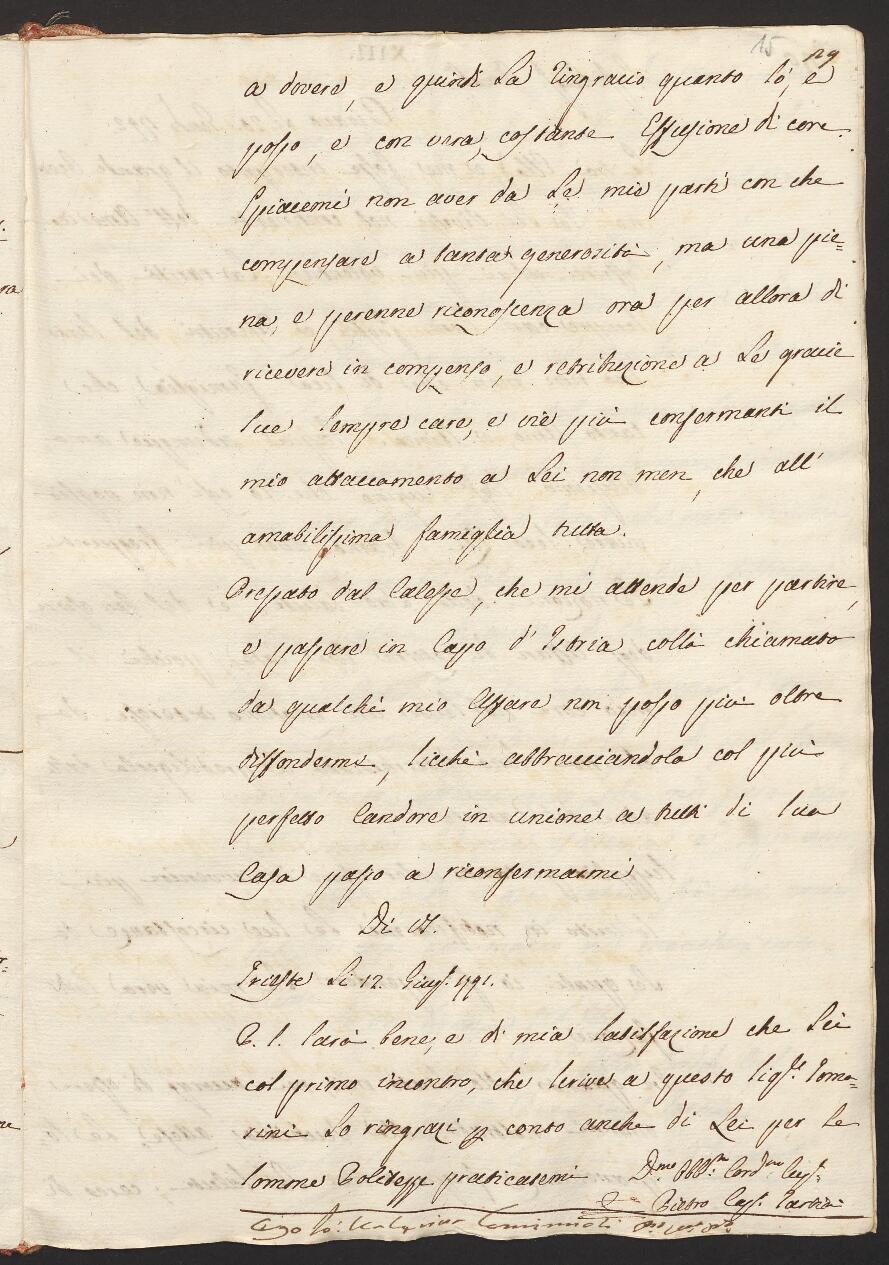 15 29
a dovere, e quindi La ringracio quanto sò, e
posso, e con vera, costante Effusione di core.
Spiacemi non aver da Le mie parti con che
compensare a tanta generosità, ma una pie=
na, e perenne riconoscenza ora per allora di
ricevere in compenso, e retribuzione a Le gracie
sue sempre care, e viè più confermanti il
mio attaccamento a Lei non men, che all'
amabilissima famiglia tutta.
Pressato dal Calesse, che mi attende per partire,
e passare in Capo d'Istria collà chiamato
da qualche mio Affare non posso più oltre
diffondermi, sicchè abbracciandola col più
perfetto Candore in unione a tutti di sua
Casa passo a riconfermarmi
Di V. S.
Trieste Li 12. Giug.º 1791.
P. S. Sarà bene, e di mia satisfazione che Lei
col primo incontro, che scrive a questo Sig.r Pomo=
rini Lo ringrazi p conto anche di Lei per le
somme Politezze praticatemi D.mo Obbl.mo Cord.mo
Pietro